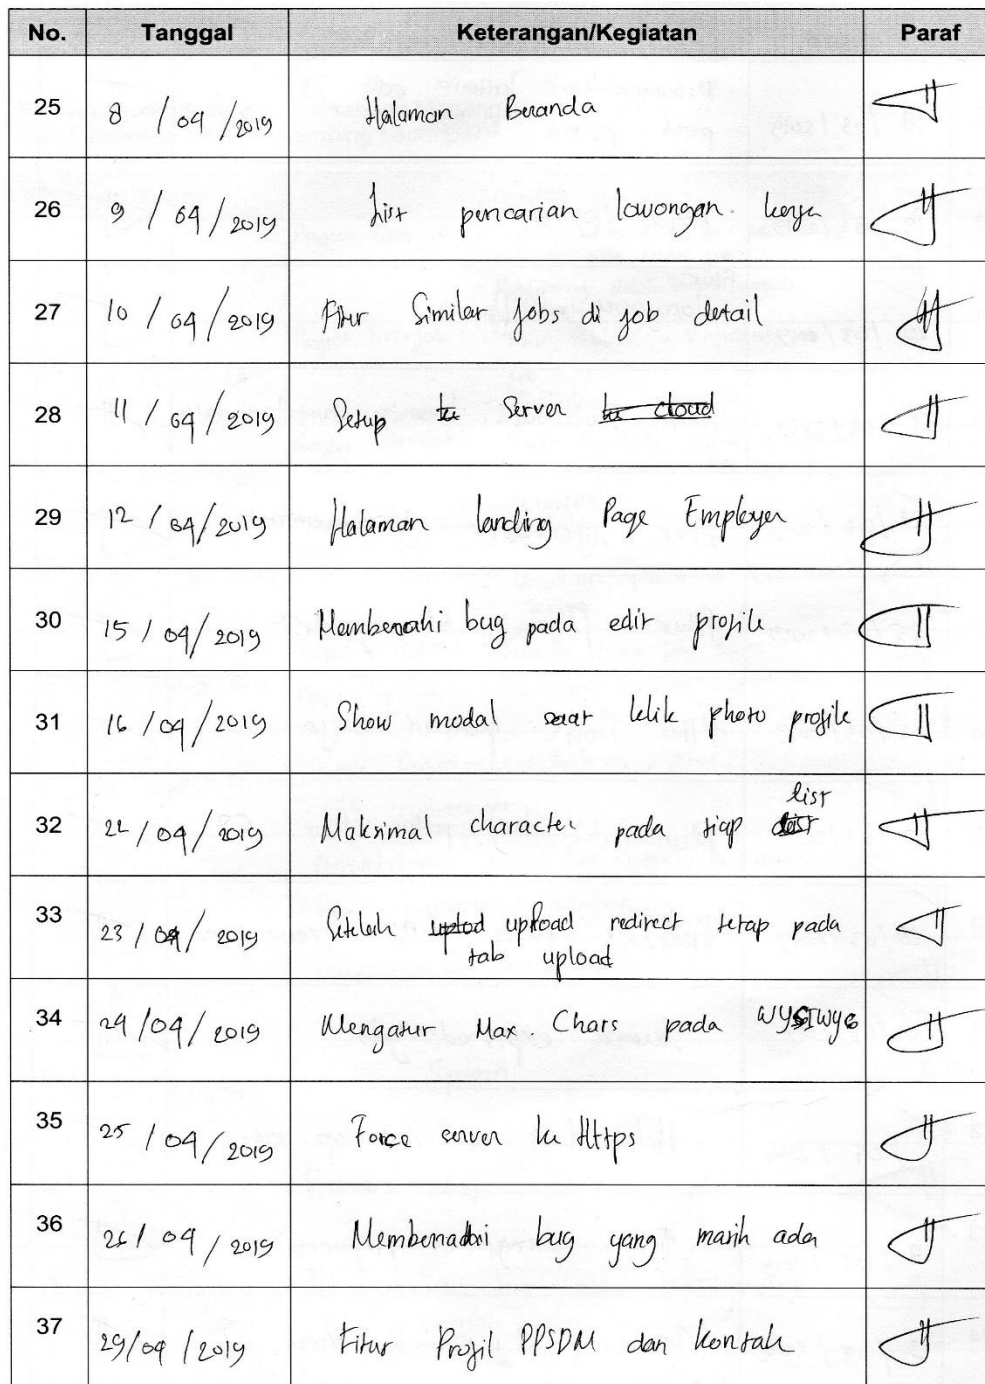 No. Tanggal Keterangan/Kegiatan Paraf
25 8 / 04 / 2019 Halaman Beranda
26 9 / 04 / 2019 List pencarian lowongan kerja
27 10 / 04 / 2019 Fitur Similar Jobs di job detail
28 11 / 04 / 2019 Setup ke Server ke cloud
29 12 / 04 / 2019 Halaman landing Page Employer
30 15 / 04 / 2019 Membenahi bug pada edit profile
31 16 / 04 / 2019 Show modal saat klik photo profile
list
32 22 / 04 / 2019 Maksimal character pada tiap
33 23 / 04 / 2019 Setelah uplod upload redirect tetap pada
tab upload
34 24 / 04 / 2019 Mengatur Max. Chars pada WYSIWYG
35 25 / 04 / 2019 Force server ke Https
36 26 / 04 / 2019 Membenahi bug yang masih ada
37 29/04 / 2019 Fitur Profil PPSDM dan kontak